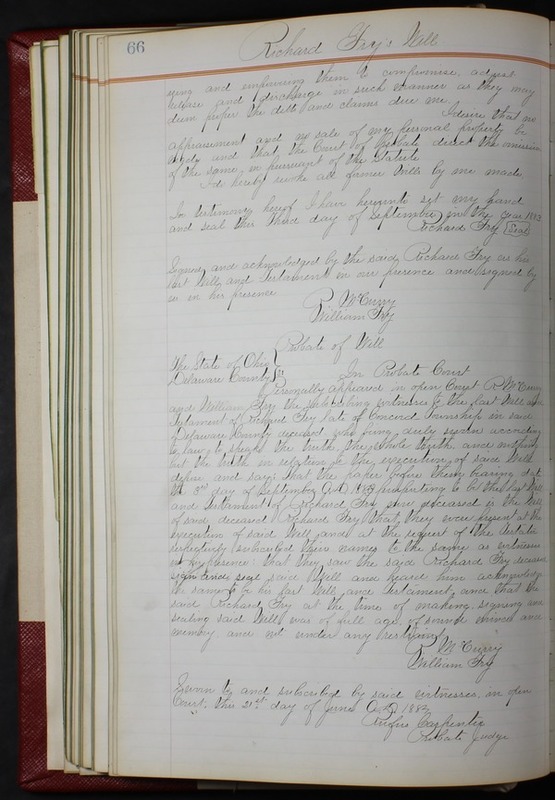 66
Richard Fry's Will
ying and empowering them to compromise adjust
release and discharge in such manner as they may
deem proper the debts and claims due me
I desire that no
appraisement and no sale of my personal property be
made and that the Court of Probate direct the omission
of the same in pursuant of the Statute
I do hereby revoke all former Wills by me made
In testimony hereof I have hereunto set my hand
and seal this third day of September in the year 1883
Richard Fry (Seal)
Signed and acknowledged by the said Richard Fry as his
last Will and Testament in our presence and signed by
us in his presence
R McCurry
William Fry
Probate of Will
The State of Ohio
Delaware County ss
In Probate Court
Personally appeared in open Court R McCurry
and William Fry the subscribing witnesses to the last Will and
Testament of Richard Fry late of Concord Township in said
Delaware County deceased who being duly sworn according
to law to speak the truth the whole truth and nothing
but the truth in relation to the execution of said Will
depose and say; that the paper before them bearing date
the 3rd day of September AD purporting to be the last Will
and Testament of Richard Fry now deceased is the Will
of said deceased Richard Fry that they were present at the
execution of said Will and at the request of the testator
respectively subscribed their names to the same as witnesses
in his presence: that they saw the said Richard Fry deceased
sign and seal said Will and heard him acknowledge
the same to be his last Will and Testament and that the
said Richard Fry at the time of making, signing and
sealing said Will was of full age of sound mind and
memory and not under any restraint
R McCurry
William Fry
Sworn to and subscribed by said witnesses in open
Court this 21st day of June AD
Rufus Carpenter
Probate Judge